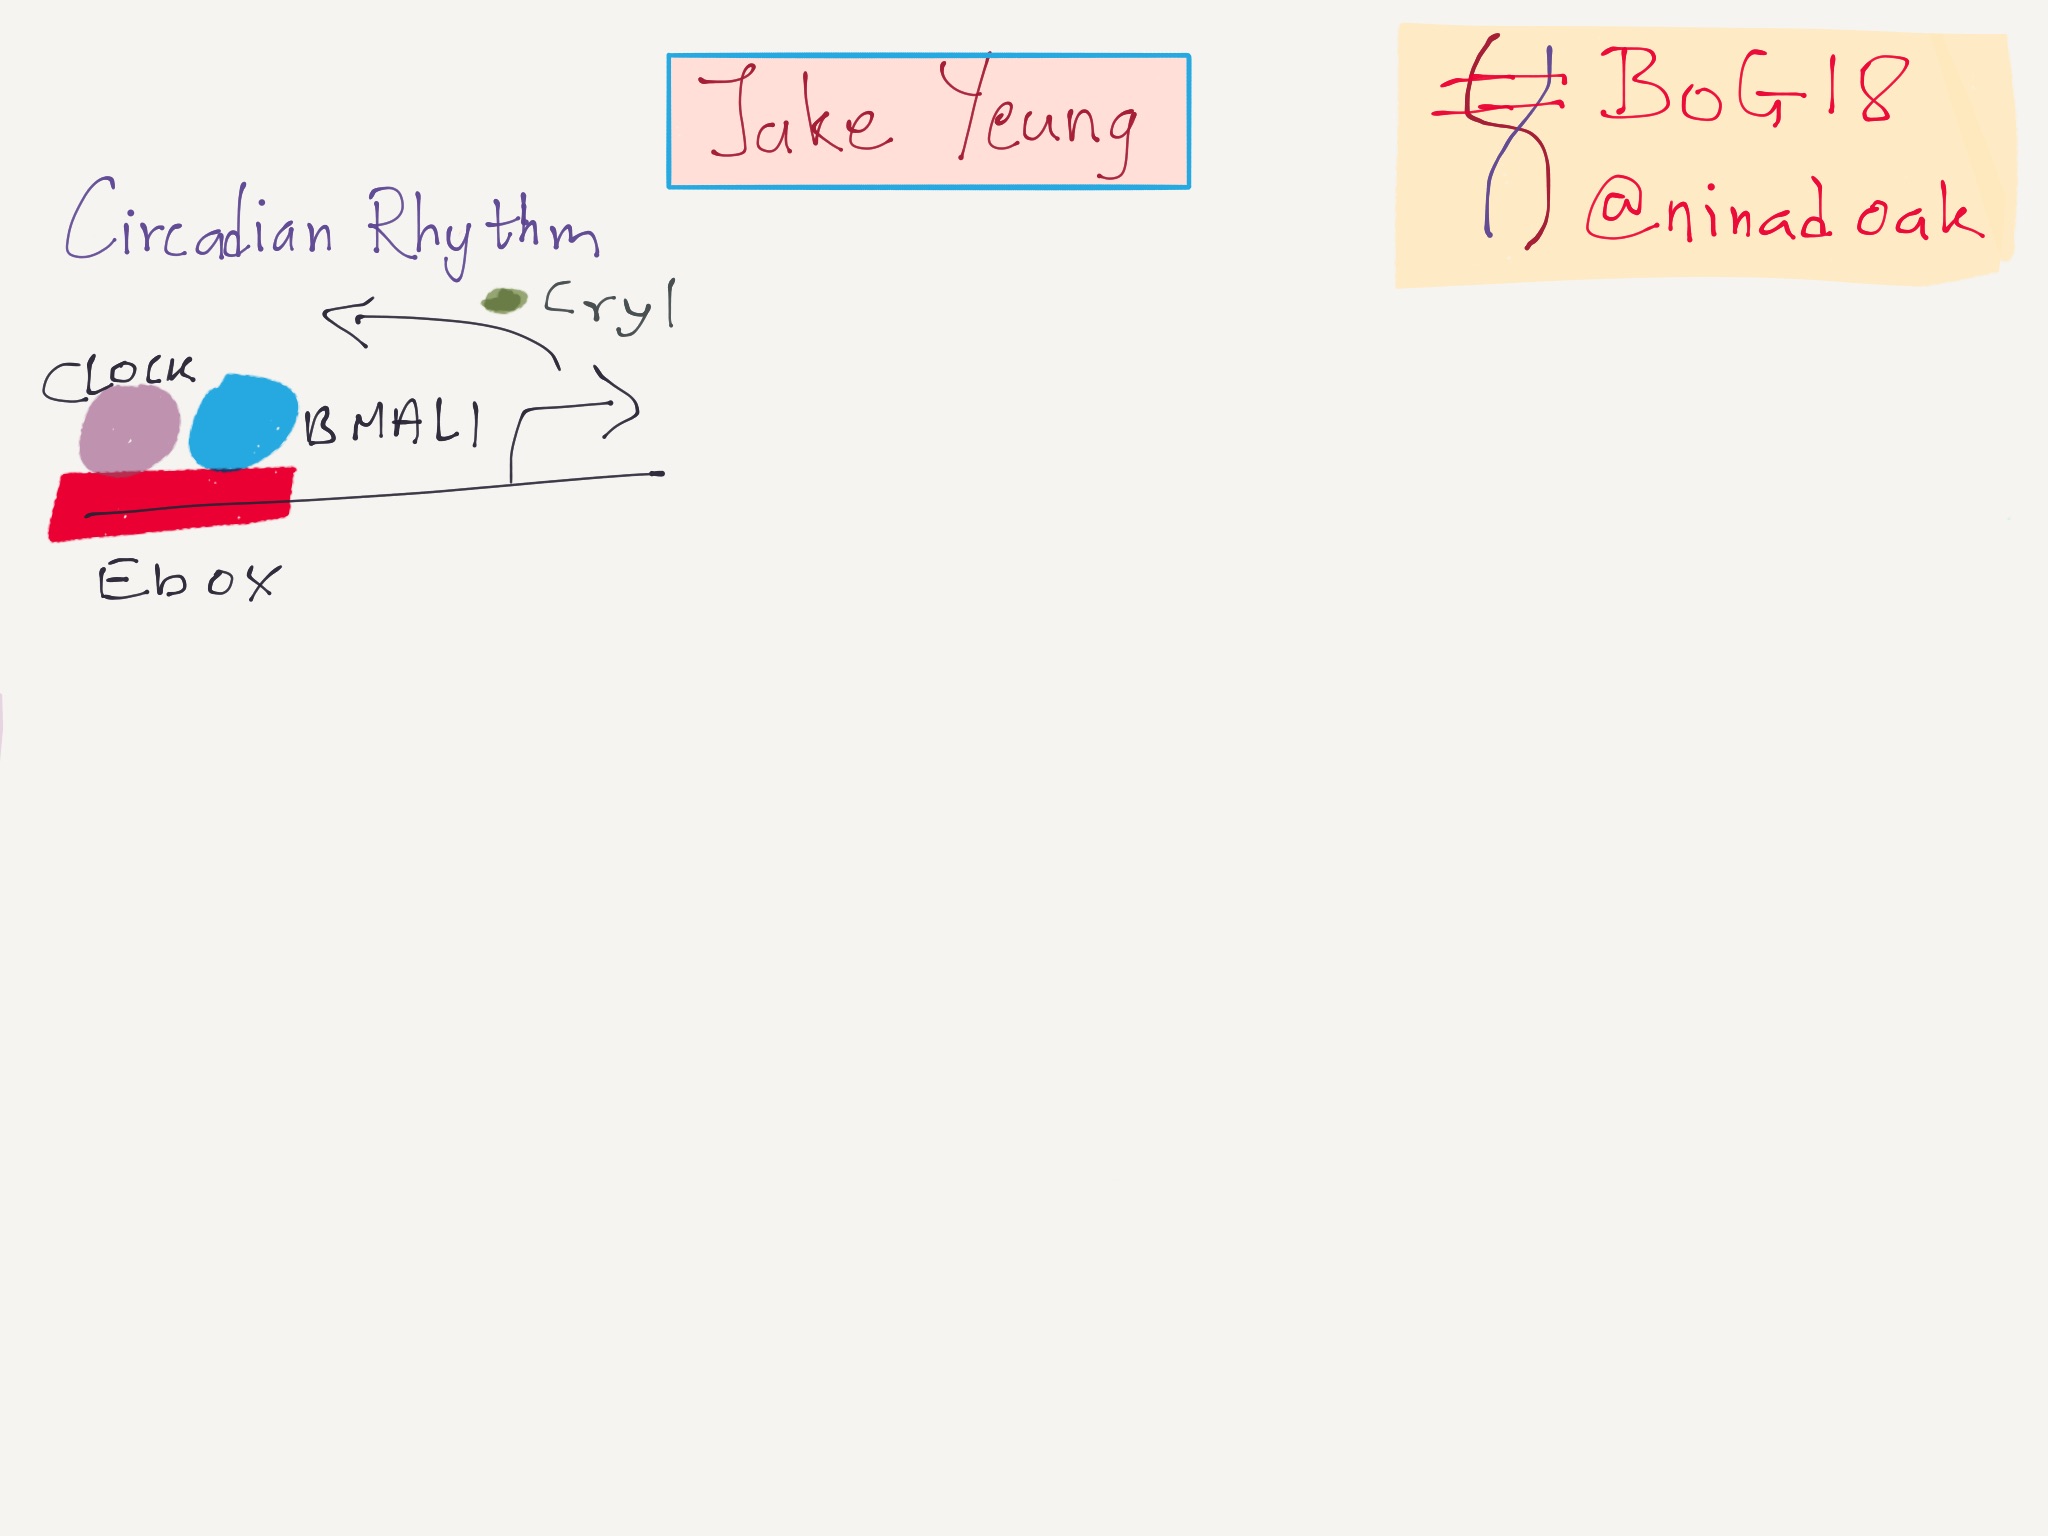 Jake Yeung
# BoG18
@ninadoak
Circadian Rhythm
Cry1
CLOCK
BMAL1
Ebox